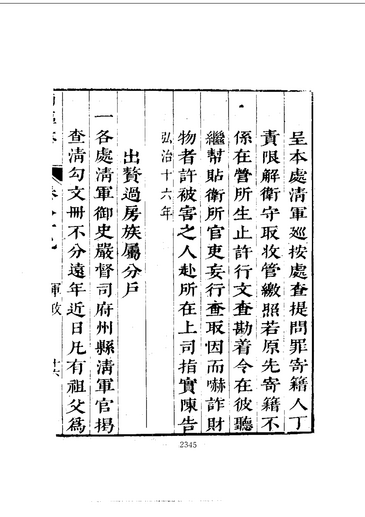 呈本處清軍廵按處查提問罪寄籍人丁
責限解衛守取收管繳照若原先寄籍不
係在營所生止許行文查勘着令在彼聽
繼幫貼衛所官吏妄行查取因而嚇詐財
物者許被害之人赴所在上司指實陳告
弘治十六年
出贅過房族屬分戶
一各處清軍御史嚴督司府州縣清軍官揭
查清勾文冊不分遠年近日凡有祖父爲
軍政
2345